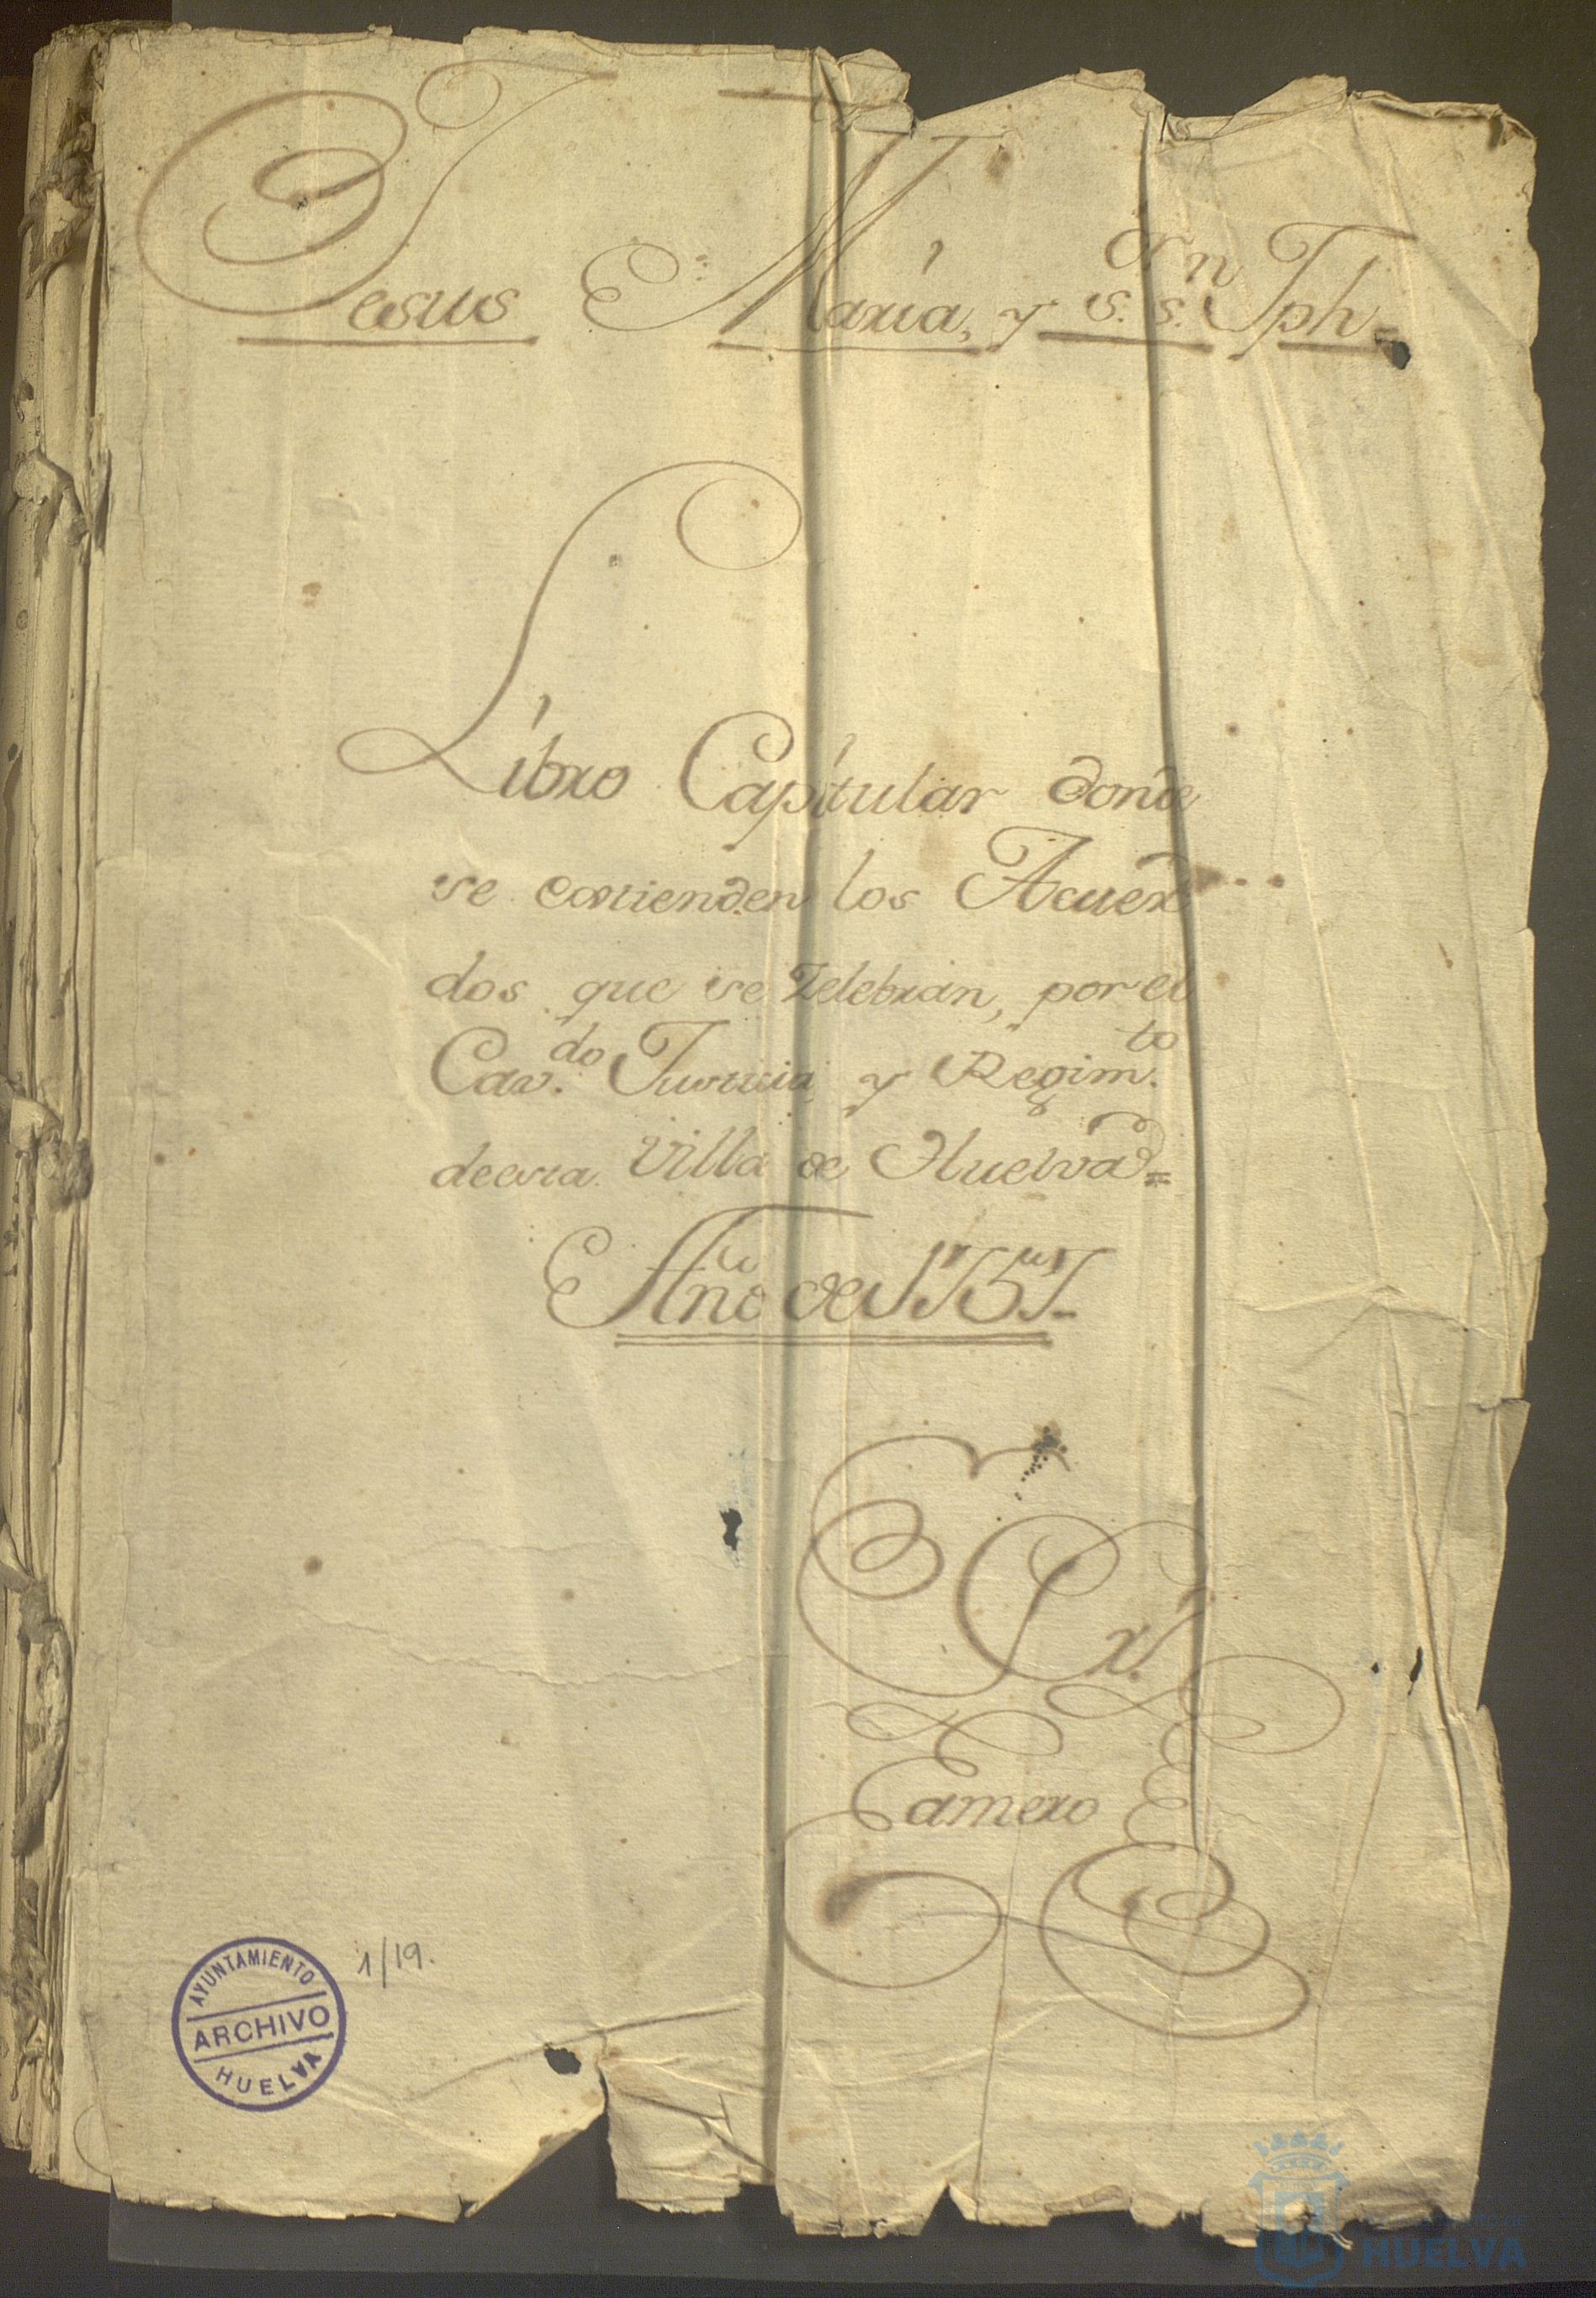 Jesus Maria, y S.r S.n Jph=
Libro Capitular donde
se extienden los Acuer
dos que se Zelebran, por el
Cav.do Justicia y Regim.to
de esta Villa de Huelva=
Año de 1757-
AYUNTAMIENTO
ARCHIVO
HUELVA
1/19.
HUELVA